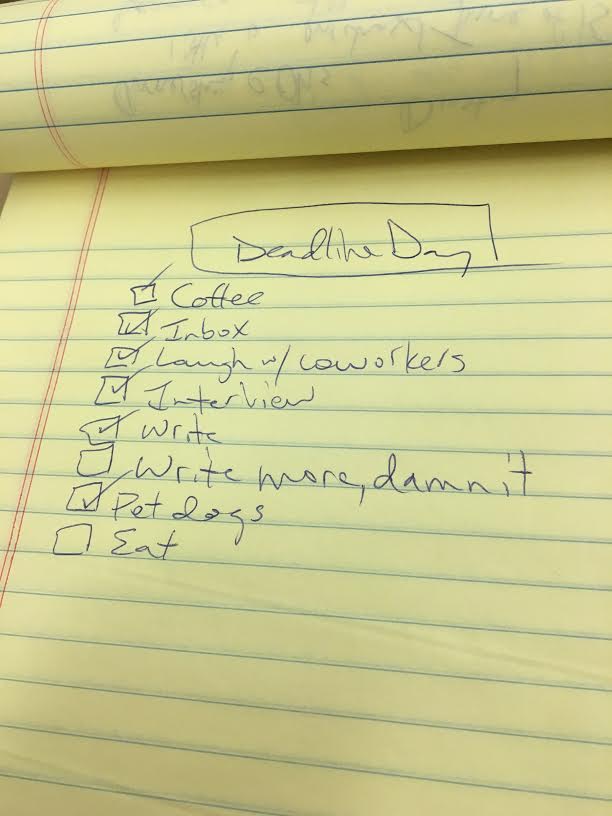 Deadline Day
Coffee
Inbox
Laugh w/ coworkers
Interview
Write
Write more, damnit
Pet dogs
Eat